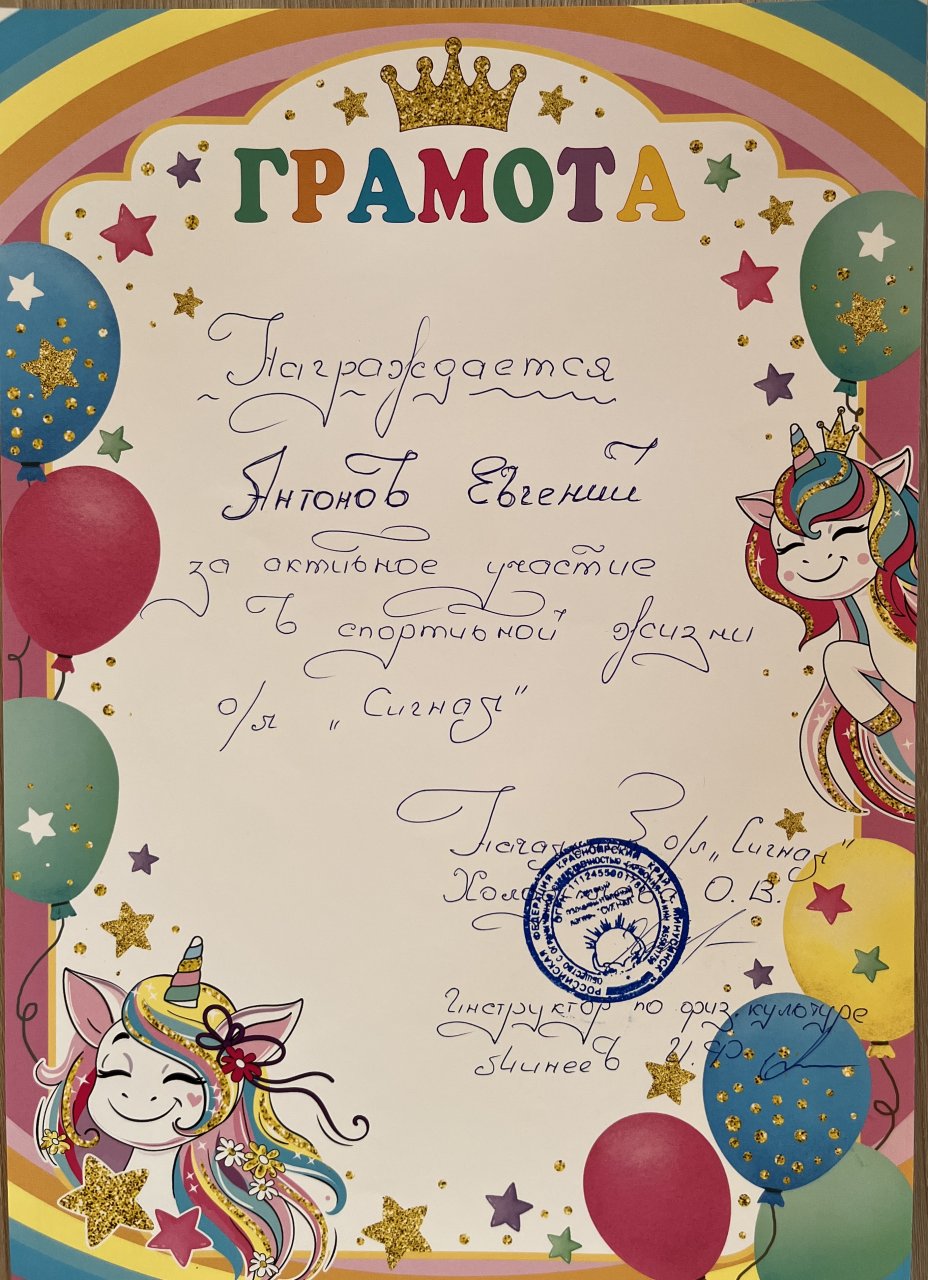 ГРАМОТА
Награждается
Антонов Евгений
за активное участие
в спортивной жизни
о/л „Сигнал"
Начал о/л „Сигнал"
О. В.
РОССИЙСКАЯ ФЕДЕРАЦИЯ КРАСНОЯРСКИЙ КРАЙ Г. МИНУСИНСК
ОБЩЕСТВО С ОГРАНИЧЕННОЙ ОТВЕТСТВЕННОСТЬЮ
Инструктор по физ. культуре
Минеев И. Ф.